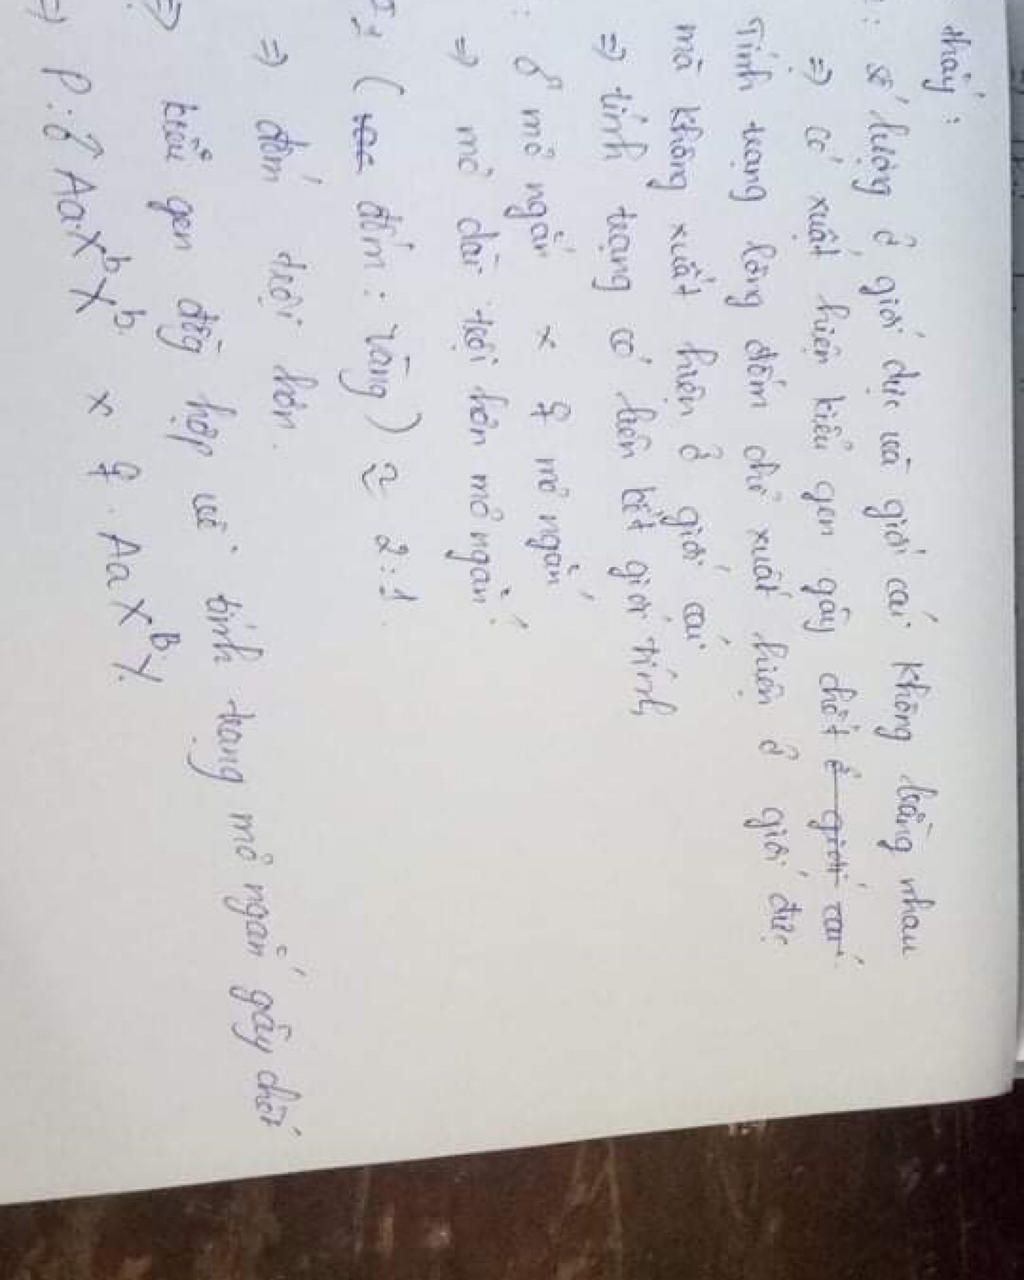 thấy:
: số lượng ở giới đực và giới cái không bằng nhau
=> có xuất hiện kiểu gen gây chết ở giới cái
Tính trạng lông đốm chỉ xuất hiện ở giới đực
mà không xuất hiện ở giới cái
=> tính trạng có liên kết giới tính
: ♂ mỏ ngắn x ♀ mỏ ngắn
=> mỏ dài trội hơn mỏ ngắn
( đốm : vằng ) ≈ 2:1
=> đốm trội hơn.
=> kiểu gen đồng hợp về tính trạng mỏ ngắn gây chết
=> P: ♂ Aa X^b X^b x ♀ Aa X^B Y.